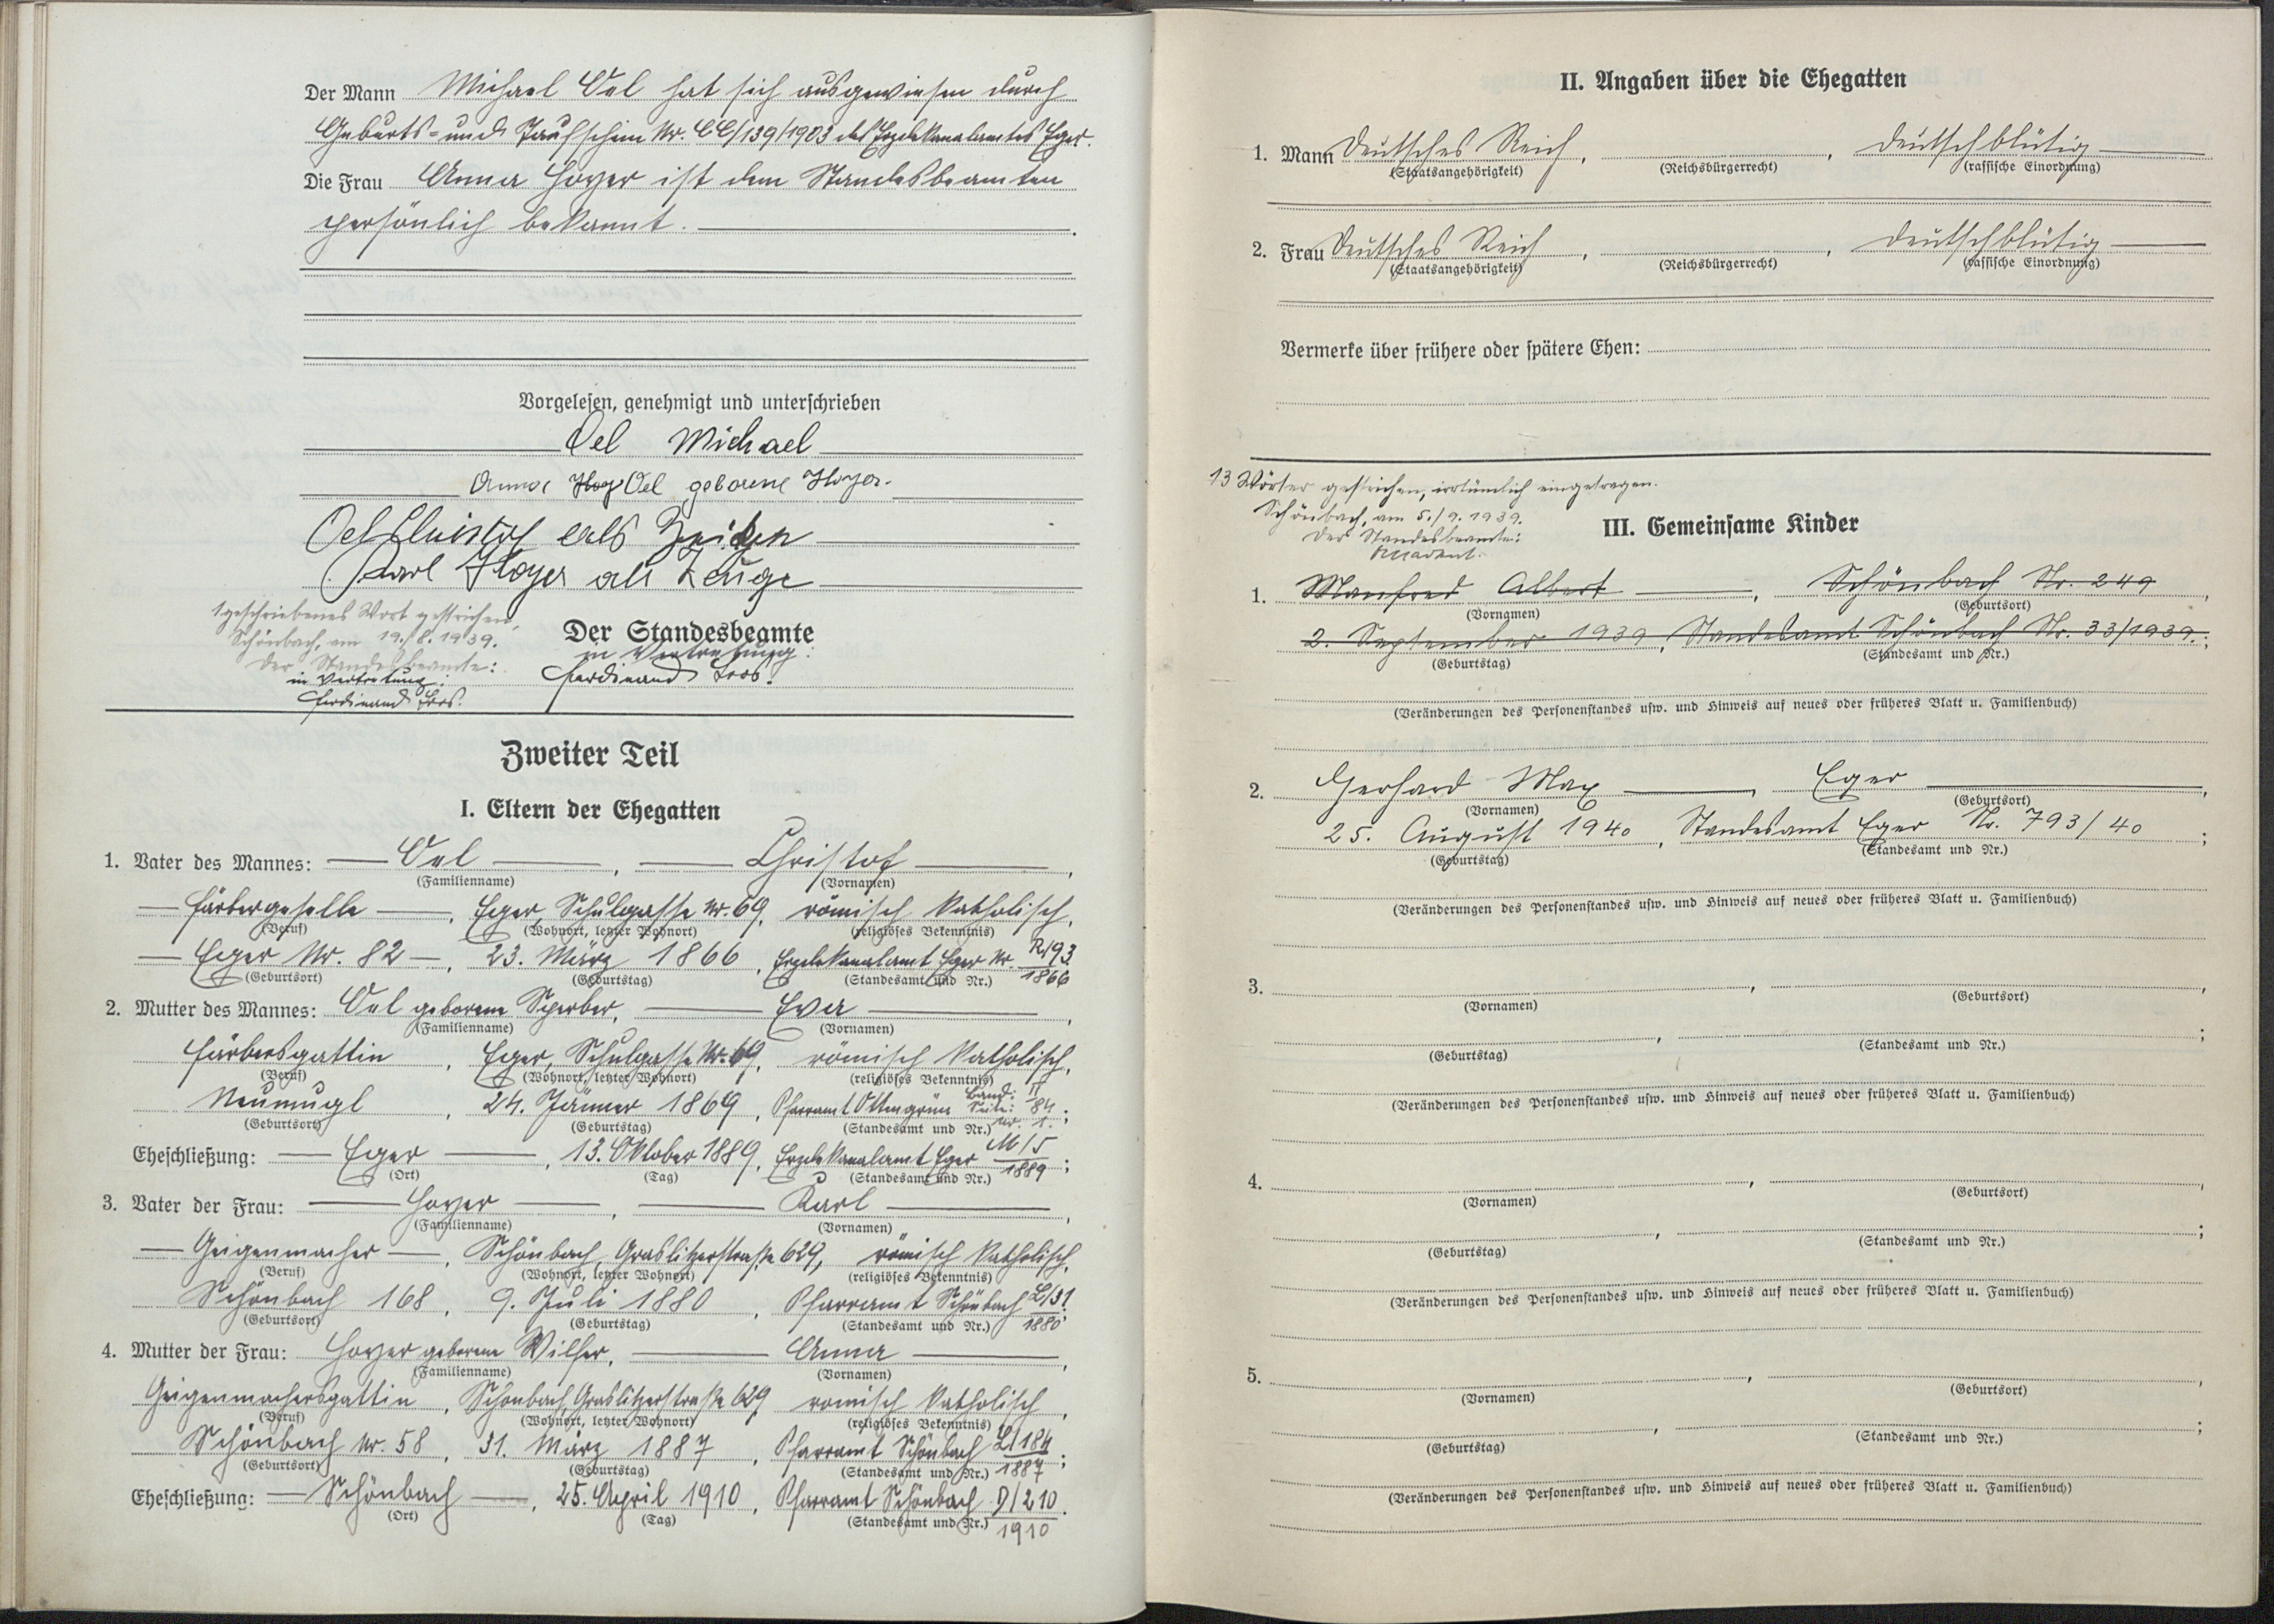 Der Mann Michael Oel hat sich ausgewiesen durch
Geburts- und Taufschein Nr. CC/139/1903 des Erzdekanalamtes Eger.
Die Frau Anna Hoyer ist dem Standesbeamten
persönlich bekannt.
Vorgelesen, genehmigt und unterschrieben
Oel Michael
Anna Hoy Oel geborene Hoyer.
Oel Christof als Zeuge
Karl Hoyer als Zeuge
1 geschriebenes Wort gestrichen,
Schönbach, am 19./8.1939.
Der Standesbeamte:
in Vertretung:
Ferdinand
Der Standesbeamte
in Vertretung:
Ferdinand
Zweiter Teil
I. Eltern der Ehegatten
1. Vater des Mannes: Oel, Christof,
(Familienname) (Vornamen)
Färbergeselle, Eger, Schulgasse Nr. 69, römisch katholisch,
(Beruf) (Wohnort, letzter Wohnort) (religiöses Bekenntnis)
Eger Nr. 82, 23. März 1866, Erzdekanalamt Eger Nr. R/93 1866
(Geburtsort) (Geburtstag) (Standesamt und Nr.)
2. Mutter des Mannes: Oel geborene Sperber, Eva,
(Familienname) (Vornamen)
Färbersgattin, Eger, Schulgasse Nr. 69, römisch katholisch,
(Beruf) (Wohnort, letzter Wohnort) (religiöses Bekenntnis)
Neumugl, 24. Jänner 1869, Pfarramt Ottengrün Band: II Seite: 84 Nr. 1.;
(Geburtsort) (Geburtstag) (Standesamt und Nr.)
Eheschließung: Eger, 13. Oktober 1889, Erzdekanalamt Eger M/5 1889;
(Ort) (Tag) (Standesamt und Nr.)
3. Vater der Frau: Hoyer, Karl,
(Familienname) (Vornamen)
Geigenmacher, Schönbach, Graslitzerstraße 629, römisch katholisch,
(Beruf) (Wohnort, letzter Wohnort) (religiöses Bekenntnis)
Schönbach 168, 9. Juli 1880, Pfarramt Schönbach L/31 1880;
(Geburtsort) (Geburtstag) (Standesamt und Nr.)
4. Mutter der Frau: Hoyer geborene Wilfer, Anna,
(Familienname) (Vornamen)
Geigenmachersgattin, Schönbach, Graslitzerstraße 629 römisch katholisch,
(Beruf) (Wohnort, letzter Wohnort) (religiöses Bekenntnis)
Schönbach Nr. 58, 31. März 1887, Pfarramt Schönbach L/184 1887;
(Geburtsort) (Geburtstag) (Standesamt und Nr.)
Eheschließung: Schönbach, 25. April 1910, Pfarramt Schönbach D/210 1910.
(Ort) (Tag) (Standesamt und Nr.)
II. Angaben über die Ehegatten
1. Mann Deutsches Reich, , deutschblütig
(Staatsangehörigkeit) (Reichsbürgerrecht) (rassische Einordnung)
2. Frau Deutsches Reich, , deutschblütig
(Staatsangehörigkeit) (Reichsbürgerrecht) (rassische Einordnung)
Vermerke über frühere oder spätere Ehen:
13 Wörter gestrichen, irrtümlich eingetragen.
Schönbach, am 5./9.1939.
Der Standesbeamte:
III. Gemeinsame Kinder
1. Manfred Albert, Schönbach Nr. 249,
(Vornamen) (Geburtsort)
2. September 1939, Standesamt Schönbach Nr. 33/1939.;
(Geburtstag) (Standesamt und Nr.)
(Veränderungen des Personenstandes usw. und Hinweis auf neues oder früheres Blatt u. Familienbuch)
2. Gerhard Max, Eger,
(Vornamen) (Geburtsort)
25. August 1940, Standesamt Eger Nr. 793/40;
(Geburtstag) (Standesamt und Nr.)
(Veränderungen des Personenstandes usw. und Hinweis auf neues oder früheres Blatt u. Familienbuch)
3. , ,
(Vornamen) (Geburtsort)
, ;
(Geburtstag) (Standesamt und Nr.)
(Veränderungen des Personenstandes usw. und Hinweis auf neues oder früheres Blatt u. Familienbuch)
4. , ,
(Vornamen) (Geburtsort)
, ;
(Geburtstag) (Standesamt und Nr.)
(Veränderungen des Personenstandes usw. und Hinweis auf neues oder früheres Blatt u. Familienbuch)
5. , ,
(Vornamen) (Geburtsort)
, ;
(Geburtstag) (Standesamt und Nr.)
(Veränderungen des Personenstandes usw. und Hinweis auf neues oder früheres Blatt u. Familienbuch)